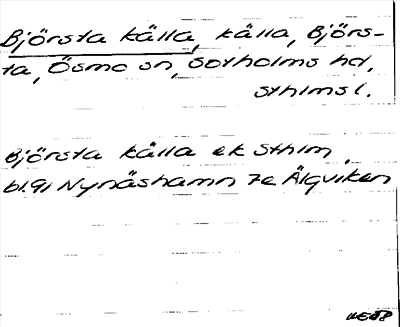 Björsta källa, källa, Björs-
ta, Ösmo sn, Sotholms hd,
sthlms l.
Björsta källa ek Sthlm
bl. 91 Nynäshamn 7e Älgviken